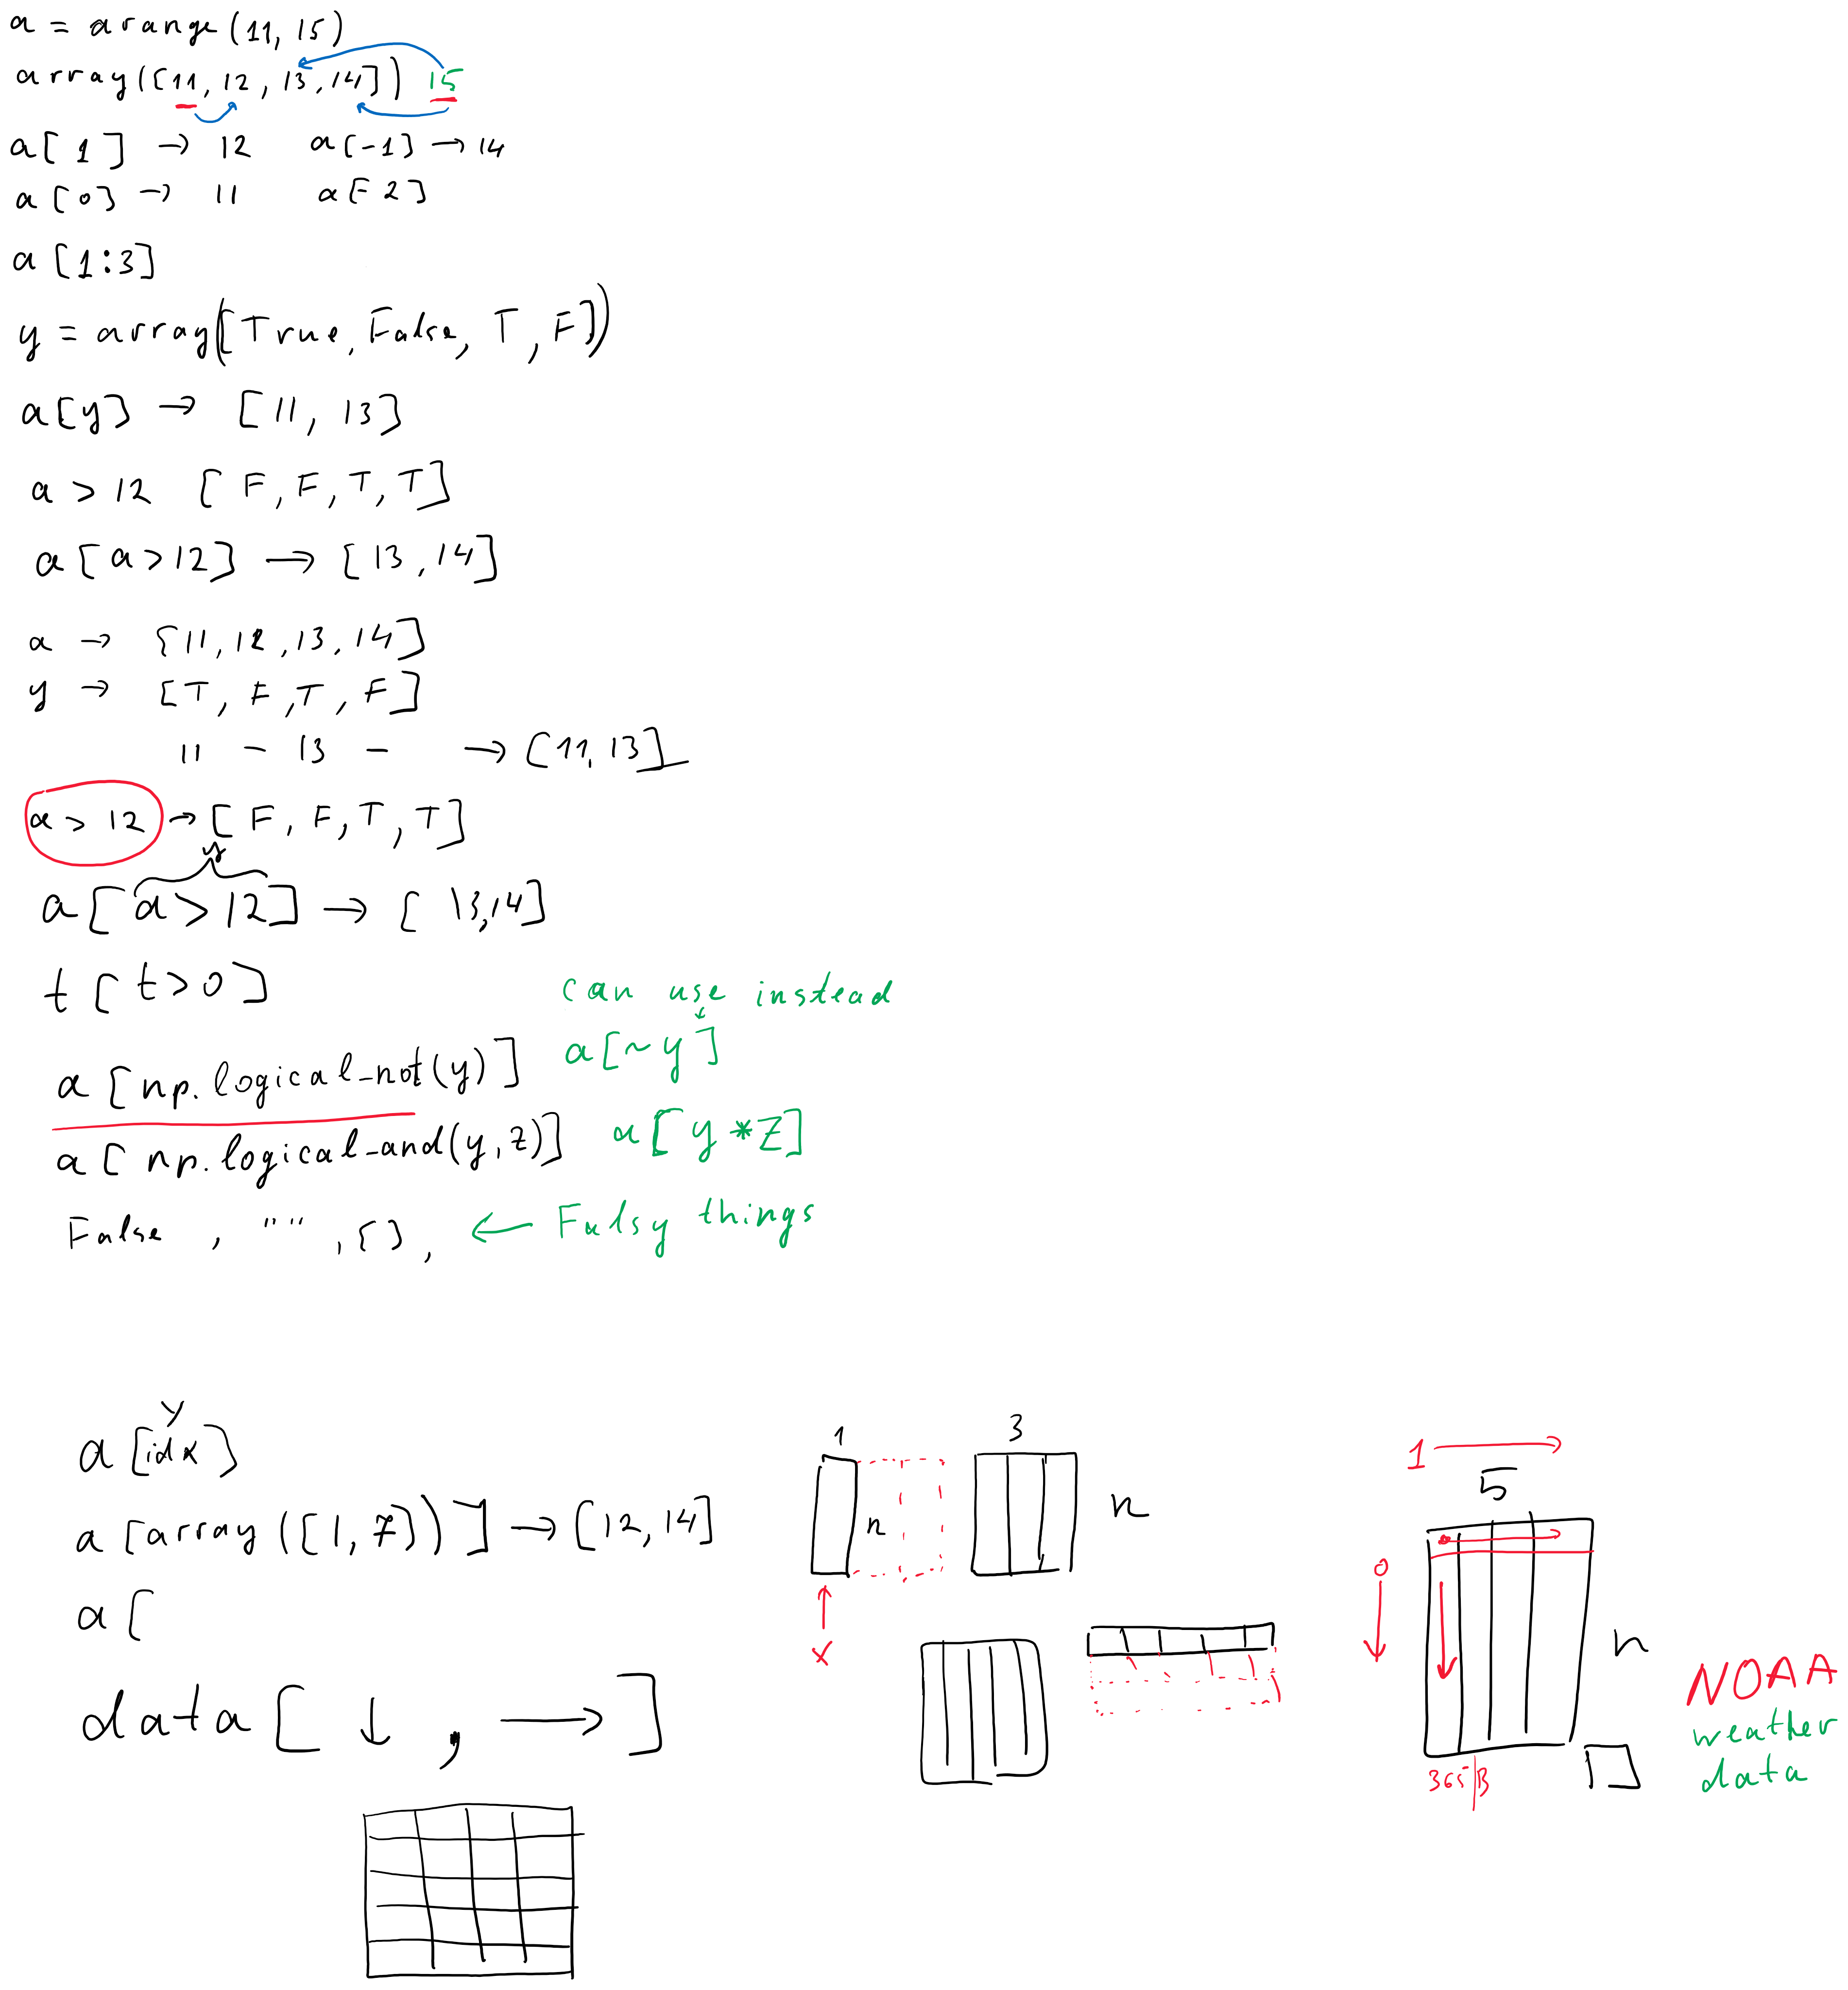 a = arange(11, 15)
array([11, 12, 13, 14]) 15
a[1] → 12 a[-1] → 14
a[0] → 11 a[-2]
a[1:3]
y = array([True, False, T, F])
a[y] → [11, 13]
a > 12 [F, F, T, T]
a[a>12] → [13, 14]
a → [11, 12, 13, 14]
y → [T, F, T, F]
11 - 13 - → [11, 13]
a > 12 → [F, F, T, T]
y
a[a>12] → [13, 14]
t[t>0]
can use instead
a[np.logical_not(y)] a[~y]
a[np.logical_and(y, z)] a[y * z]
False, "", [], ← Falsy things
y
a[idx]
a[array([1, 7])] → [12, 14]
a[
data[↓, →]
1
n
x
3
n
1 →
5
0
n
365 | B
NOAA
weather
data